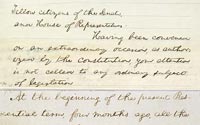 Fellow citizens of the Senate
and House of Representatives
Having been convened
on an extraordinary occasion, as author-
ized by the Constitution, your attention
is not called to any ordinary subject
of legislation.
At the beginning of the present Pres-
idential term, four months ago, all the